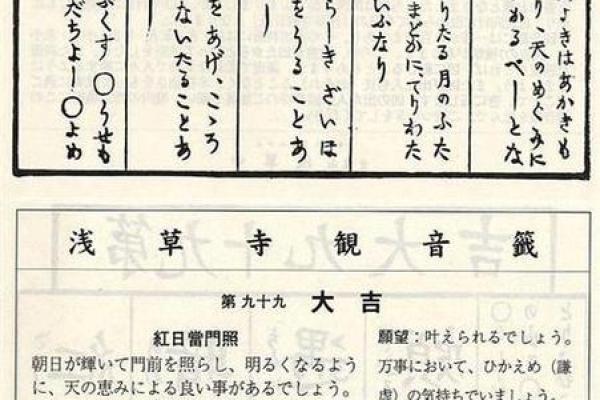 よきはあかきも
り、天のめぐみに
かるべーとな
りたる月のふた
まどかに、てりわた
いふなり
らーき ざいほ
をうることあ
ー
をあげ、こゝろ
ないたることあ
ー
ぶくす ○うせも
だちよー○よめ
浅草寺観音籤
第九十九 大吉
紅日當門照
朝日が輝いて門前を照らし、明るくなるよう
に、天の恵みによる良い事があるでしょう。
願望：叶えられるでしょう。
万事において、ひかえめ（謙
虚）の気持ちでいましょう。